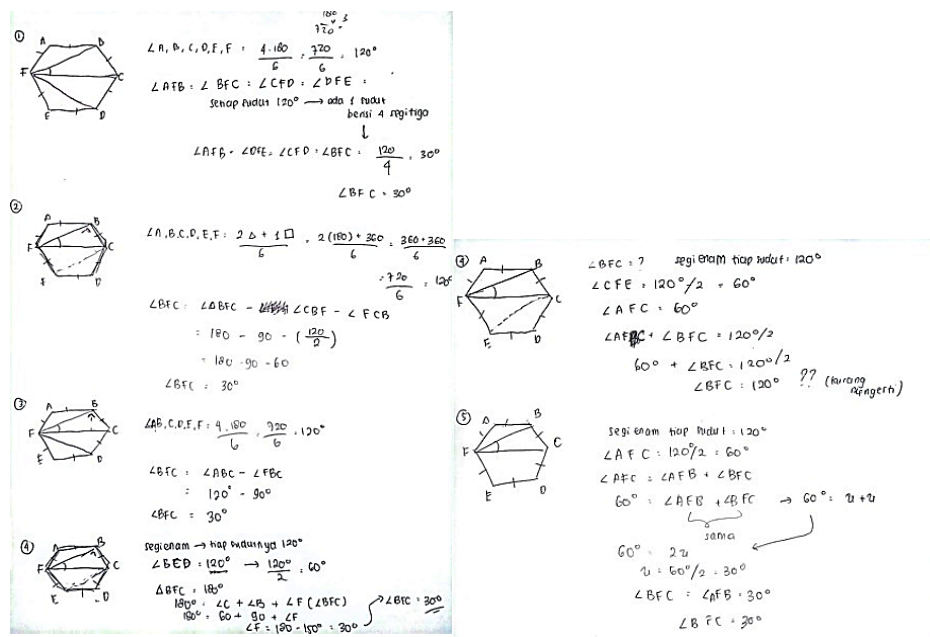 ①
A B C D E F
180
720 3
∠A, B, C, D, E, F : 4.180/6 = 720/6 = 120°
∠AFB = ∠BFC = ∠CFD = ∠DFE =
setiap sudut 120° → ada 1 sudut
berisi 4 segitiga
↓
∠AFB = ∠DFE = ∠CFD = ∠BFC = 120/4 = 30°
∠BFC = 30°
②
A B C D E F
∠A,B,C,D,E,F : 2△ + 1□/6 = 2(180) + 360/6 = 360+360/6
= 720/6 = 120°
∠BFC = ∠ABC - ∠CBF - ∠FCB
= 180 - 90 - (120/2)
= 180 - 90 - 60
∠BFC = 30°
③
A B C D E F
∠AB,C,D,E,F : 4.180/6 = 720/6 = 120°
∠BFC = ∠ABC - ∠FBC
= 120° - 90°
∠BFC = 30°
④
A B C D E F
segienam → tiap sudutnya 120°
∠BED = 120° → 120°/2 = 60°
△BFC = 180°
180° = ∠C + ∠B + ∠F (∠BFC)
180° = 60 + 90 + ∠F
∠F = 180 - 150° = 30° → ∠BFC = 30°
④
A B C D E F
∠BFC = ? segienam tiap sudut = 120°
∠CFE = 120°/2 = 60°
∠AFC = 60°
+ ∠BFC = 120°/2
60° + ∠BFC = 120°/2
∠BFC = 120° ?? (kurang mengerti)
⑤
A B C D E F
segienam tiap sudut = 120°
∠AFC = 120°/2 = 60°
∠AFC = ∠AFB + ∠BFC
60° = ∠AFB + ∠BFC → 60° = u+u
sama
60° = 2u
u = 60°/2 = 30°
∠BFC = ∠AFB = 30°
∠BFC = 30°